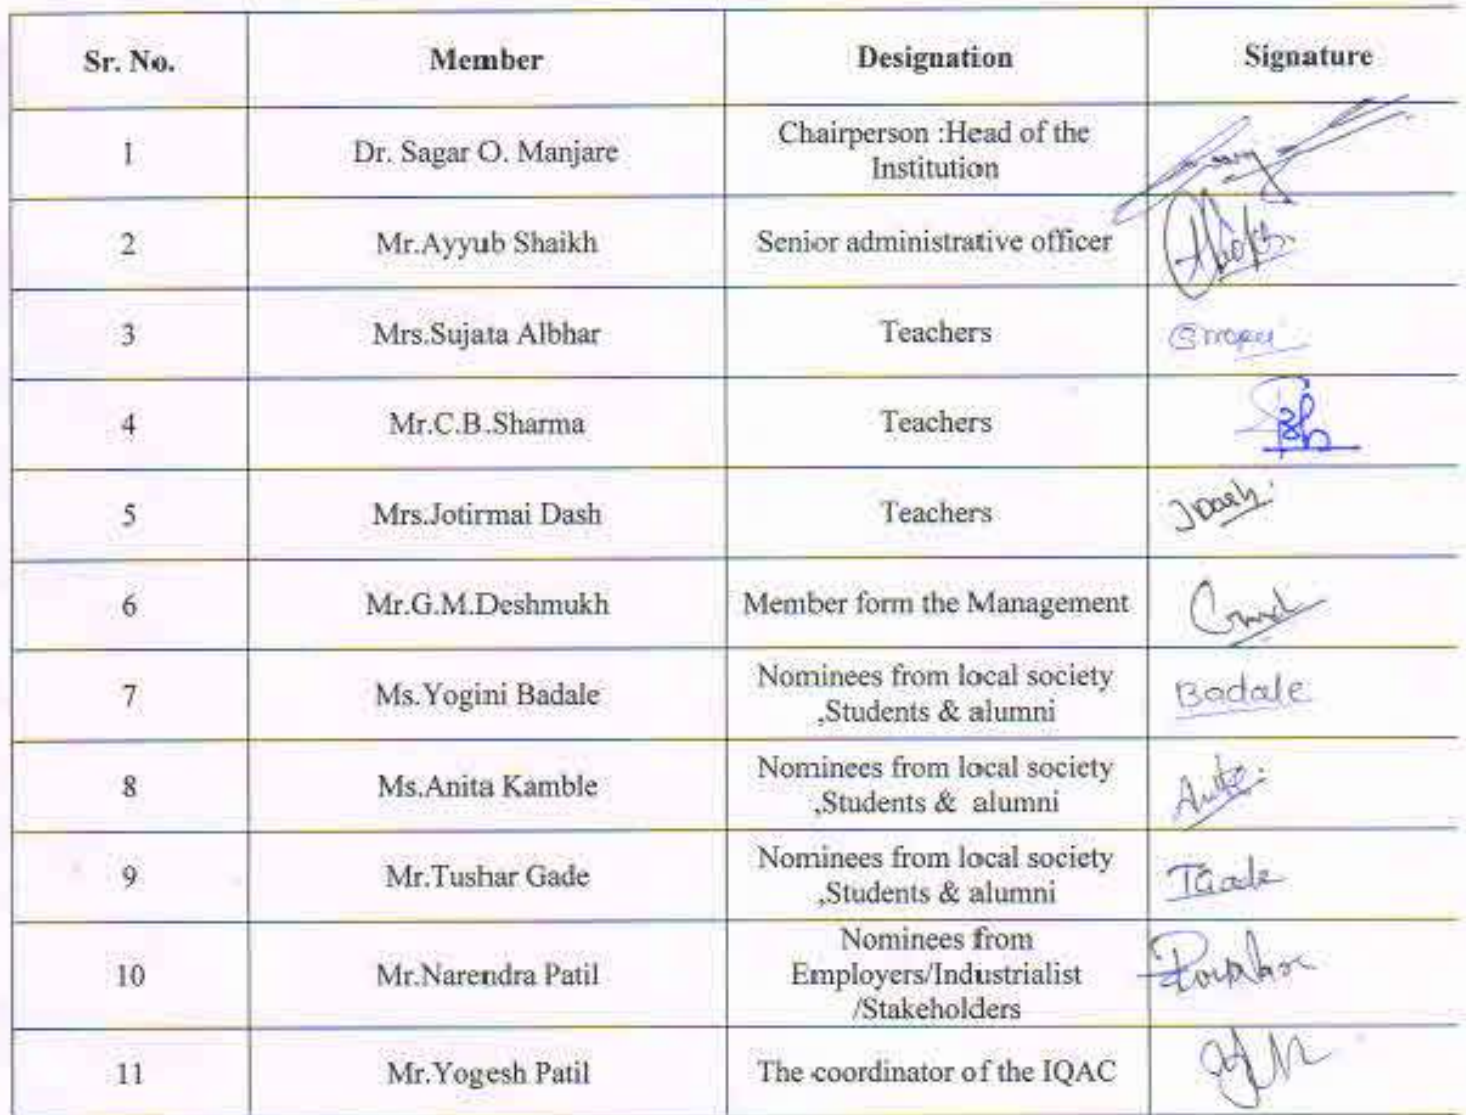 Sr. No. Member Designation Signature
1 Dr. Sagar O. Manjare Chairperson :Head of the
Institution
2 Mr.Ayyub Shaikh Senior administrative officer
3 Mrs.Sujata Albhar Teachers
4 Mr.C.B.Sharma Teachers
5 Mrs.Jotirmai Dash Teachers JDash
6 Mr.G.M.Deshmukh Member form the Management
7 Ms.Yogini Badale Nominees from local society
,Students & alumni Badale
8 Ms.Anita Kamble Nominees from local society
,Students & alumni Anita
9 Mr.Tushar Gade Nominees from local society
,Students & alumni TGade
10 Mr.Narendra Patil Nominees from
Employers/Industrialist
/Stakeholders
11 Mr.Yogesh Patil The coordinator of the IQAC